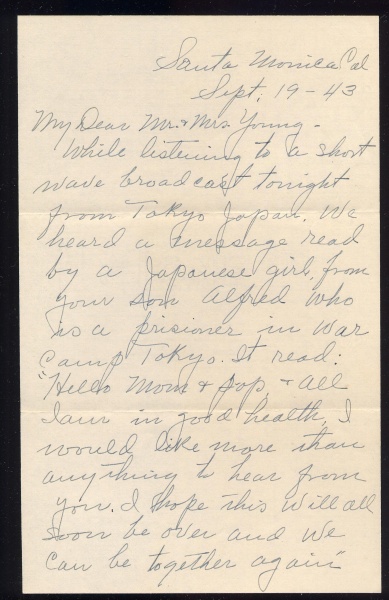 Santa Monica Cal
Sept. 19-43
My Dear Mr. & Mrs. Young -
While listening to a short
wave broadcast tonight
from Tokyo Japan. We
heard a message read
by a Japanese girl, from
your son Alfred who
is a prisioner in War
Camp Tokyo. It read:
"Hello Mom & Pop, & All
I am in good health, I
would like more than
anything to hear from
you. I hope this will all
soon be over and we
can be together again"